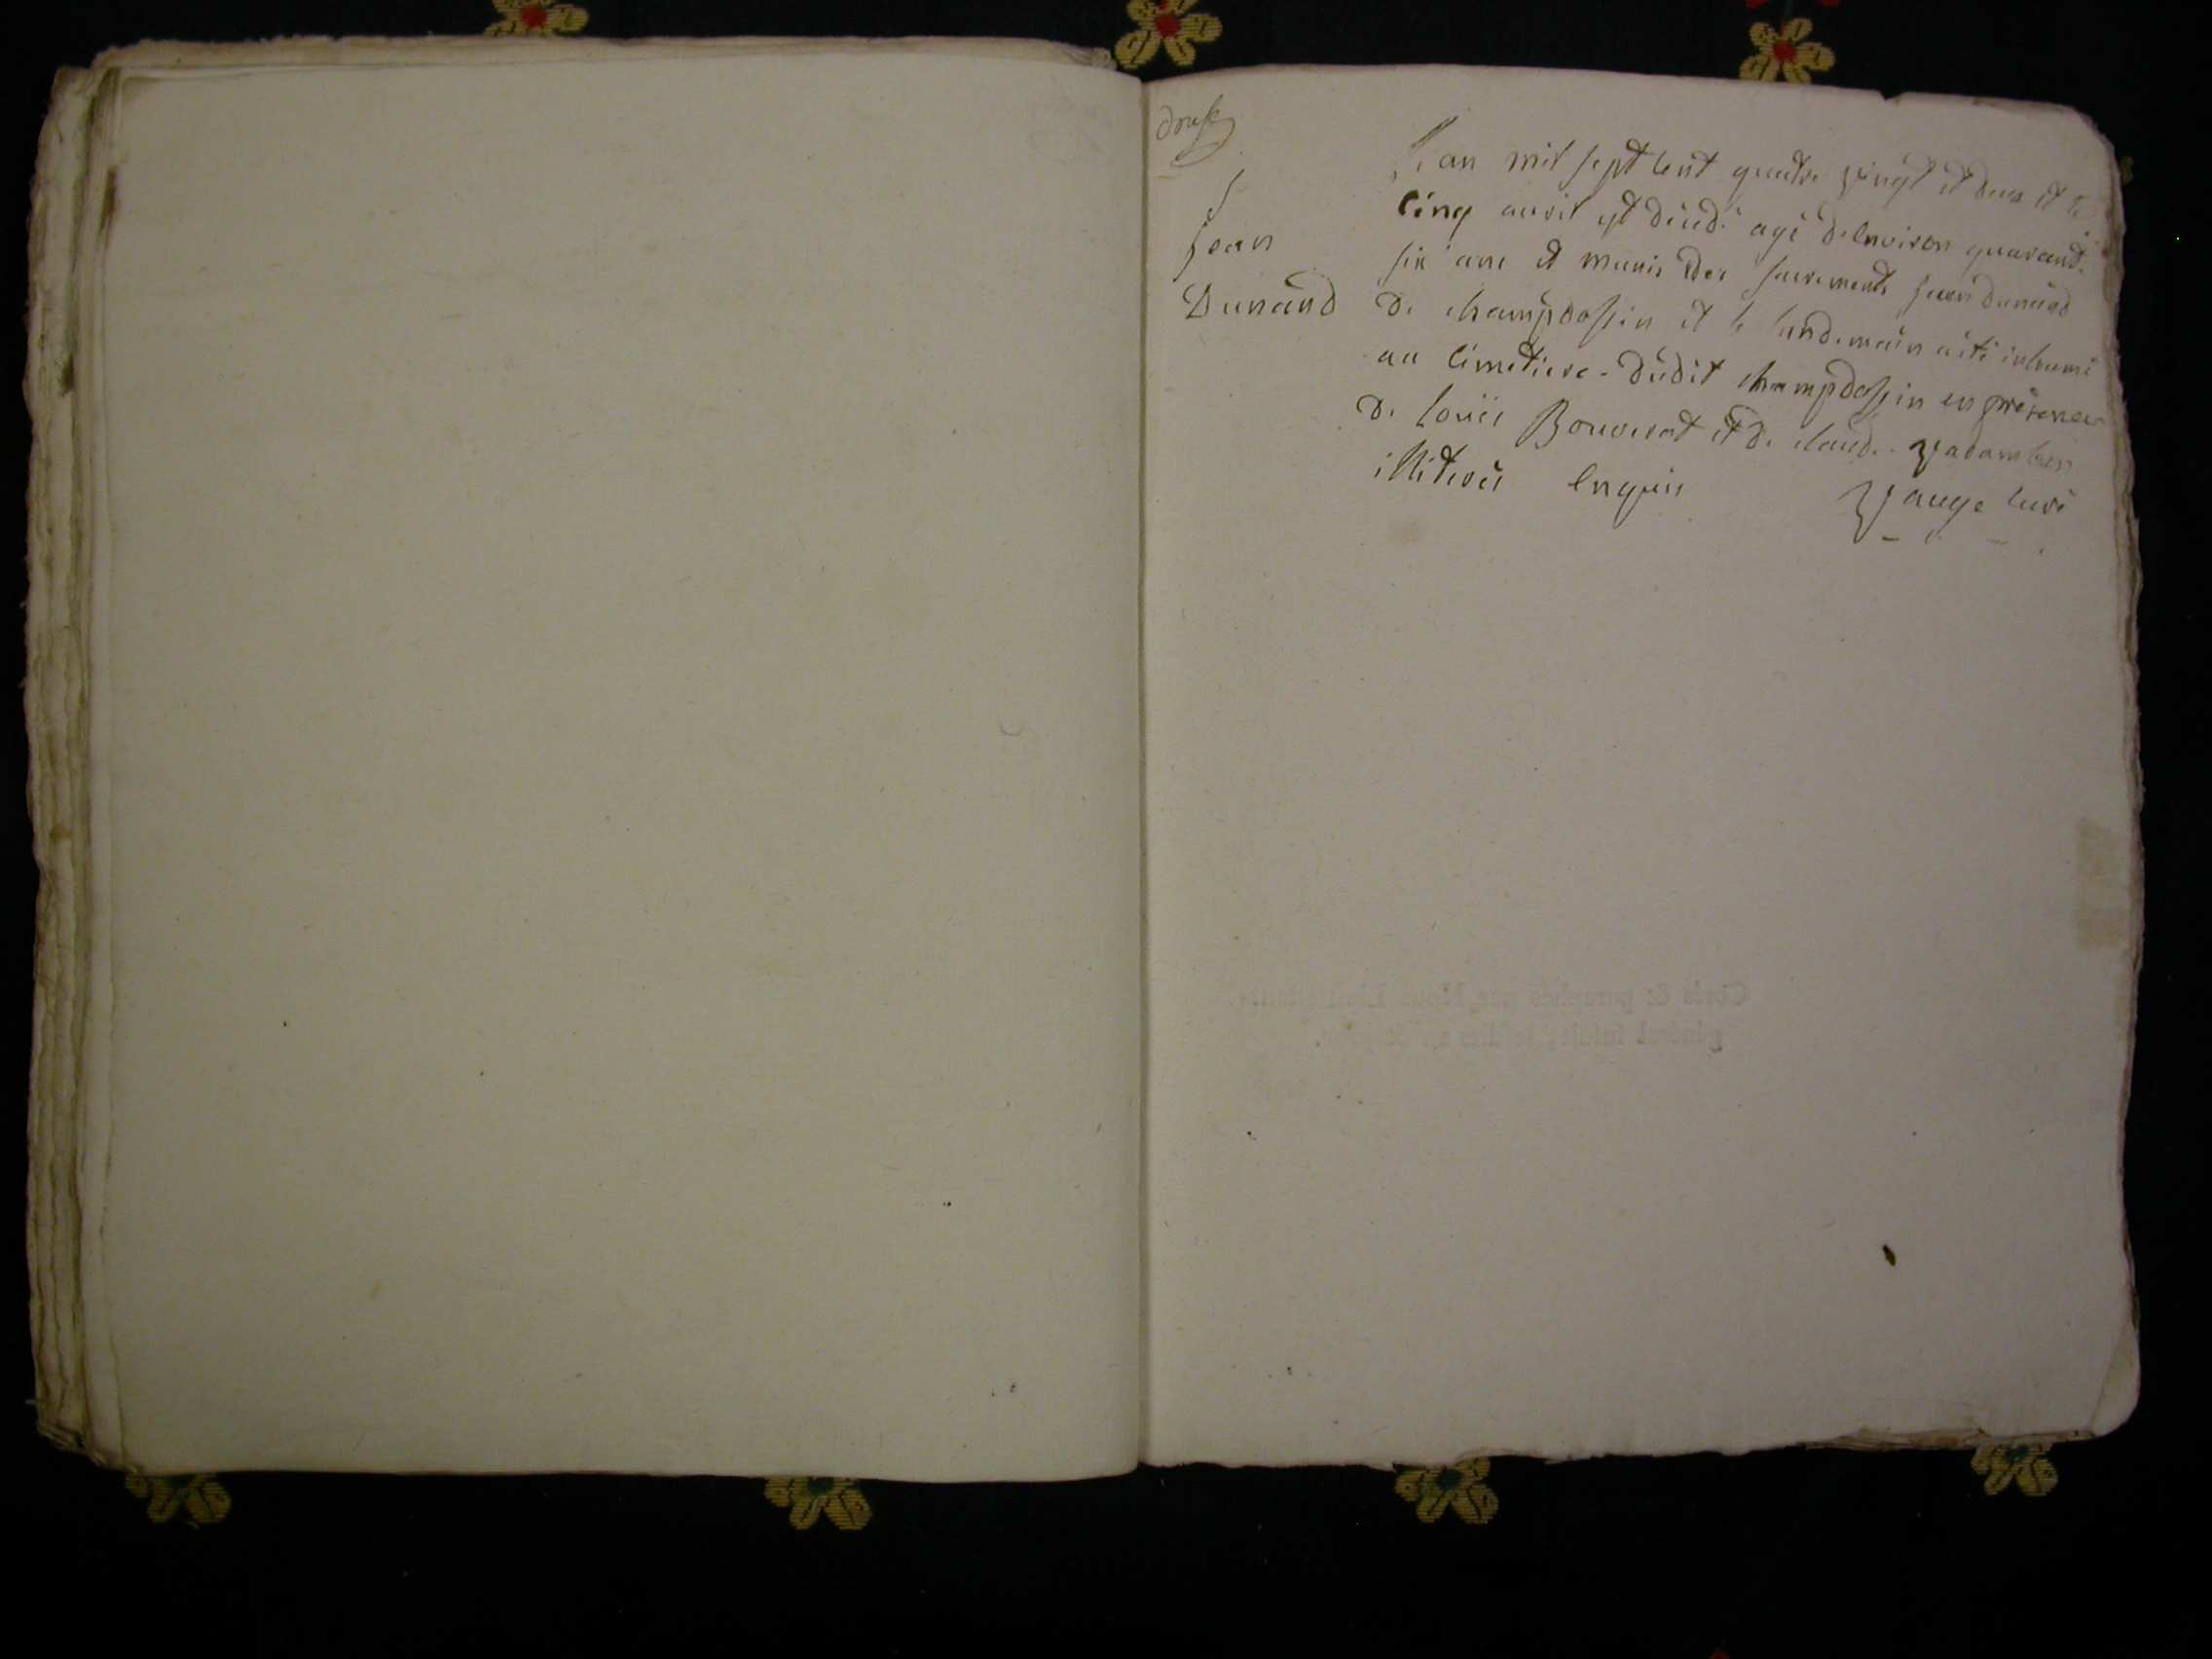 S
Jean
Dunand
L'an mil sept cent quatre vingt et deux et le
cinq avril est décédé agé d'environ quarante
six ans et munis des sacrements Jean dunand
de champdossin et le lendemain a été inhumé
au cimetiere dudit champdossin en présence
de Louis Bouverat et de claude
illiterés enquis Vauge curé